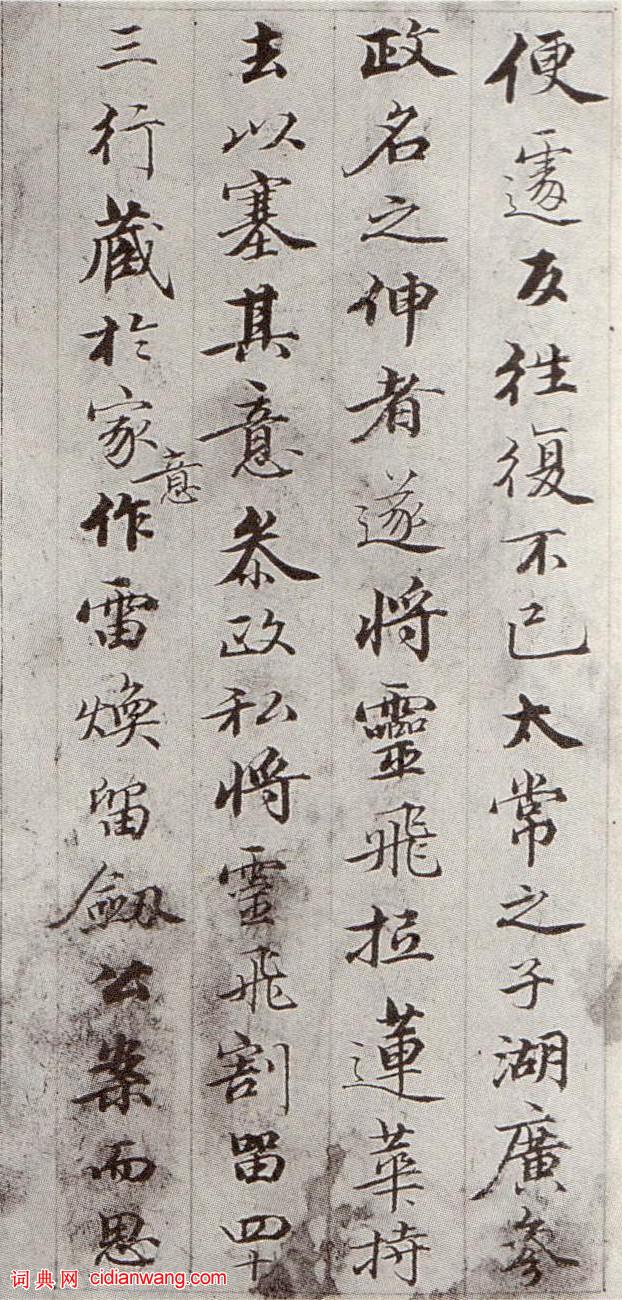 便遽反往復不已太常之子湖廣參
政名之伸者遂將靈飛蓮華持
去以塞其意參政私將靈飛割留四十
三行藏於家意作雷煥留劔公案而思
词典网 cidianwang.com